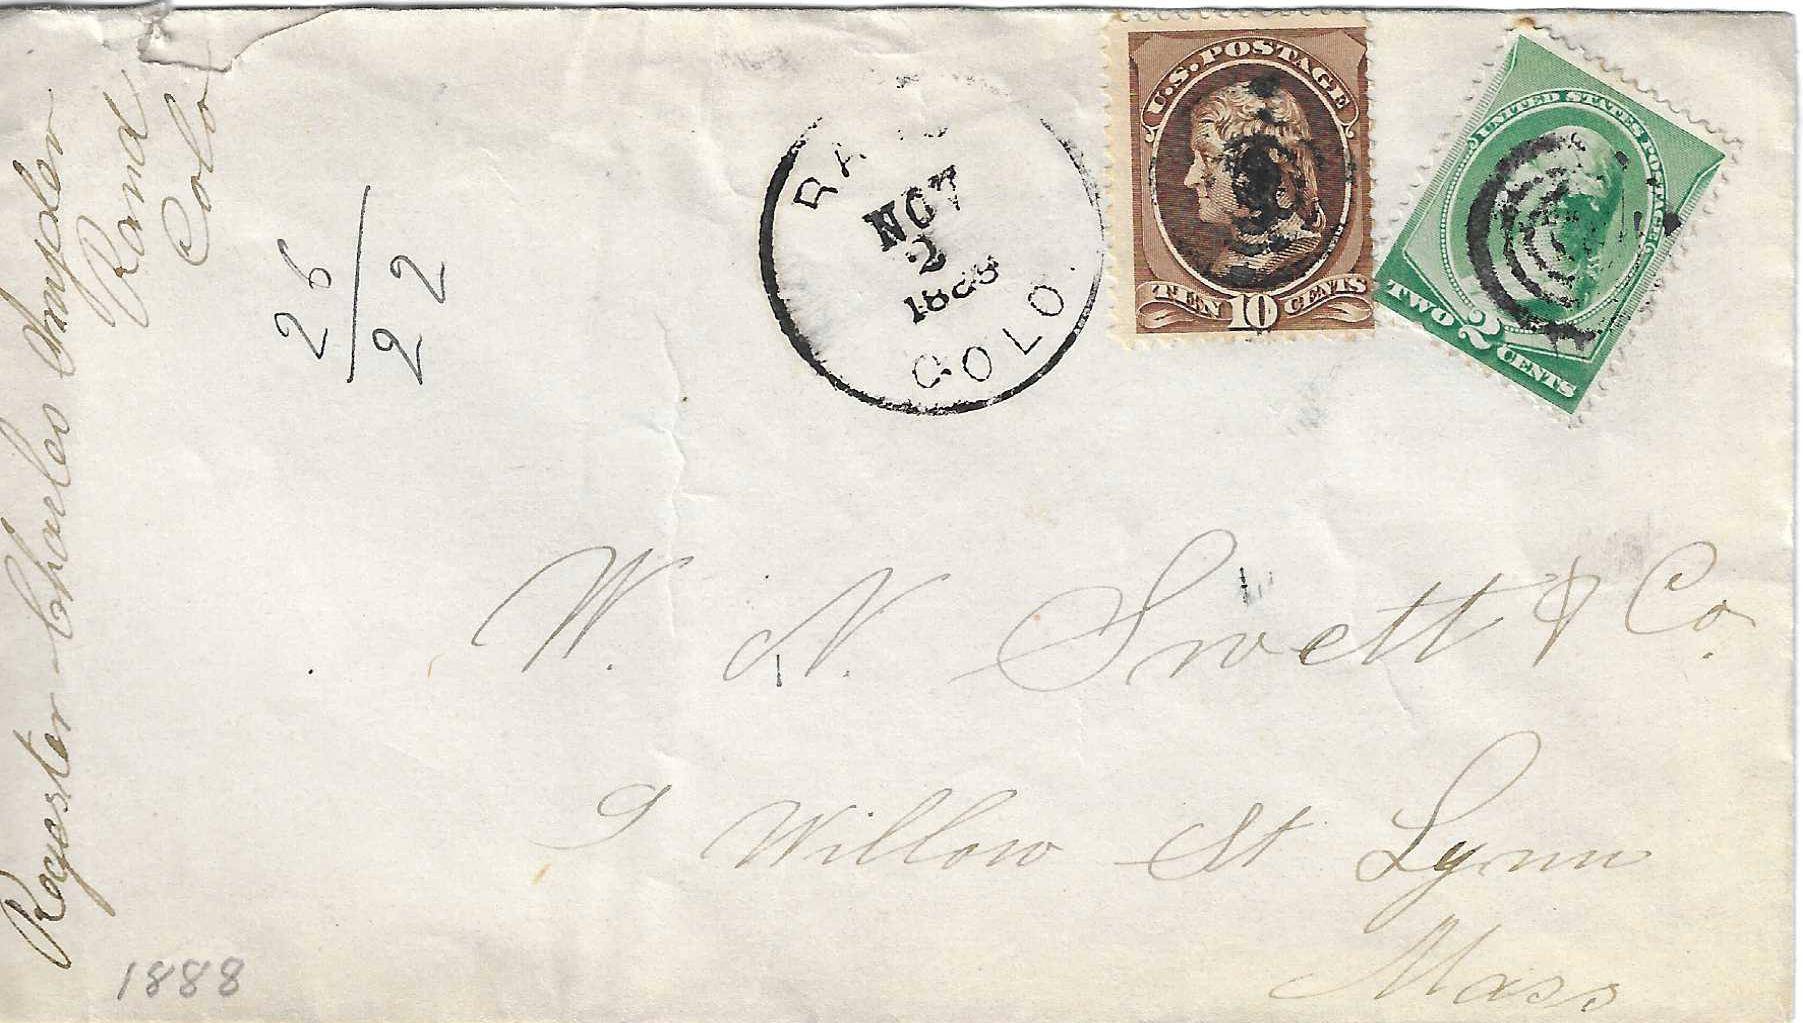 Regester Charles Snyder
Rand
Colo
26/22
RAND
NOV
2
1888
COLO.
U.S. POSTAGE
TEN 10 CENTS
UNITED STATES POSTAGE
TWO 2 CENTS
W. N. Swett & Co.
9 Willow St Lynn
Mass
1888